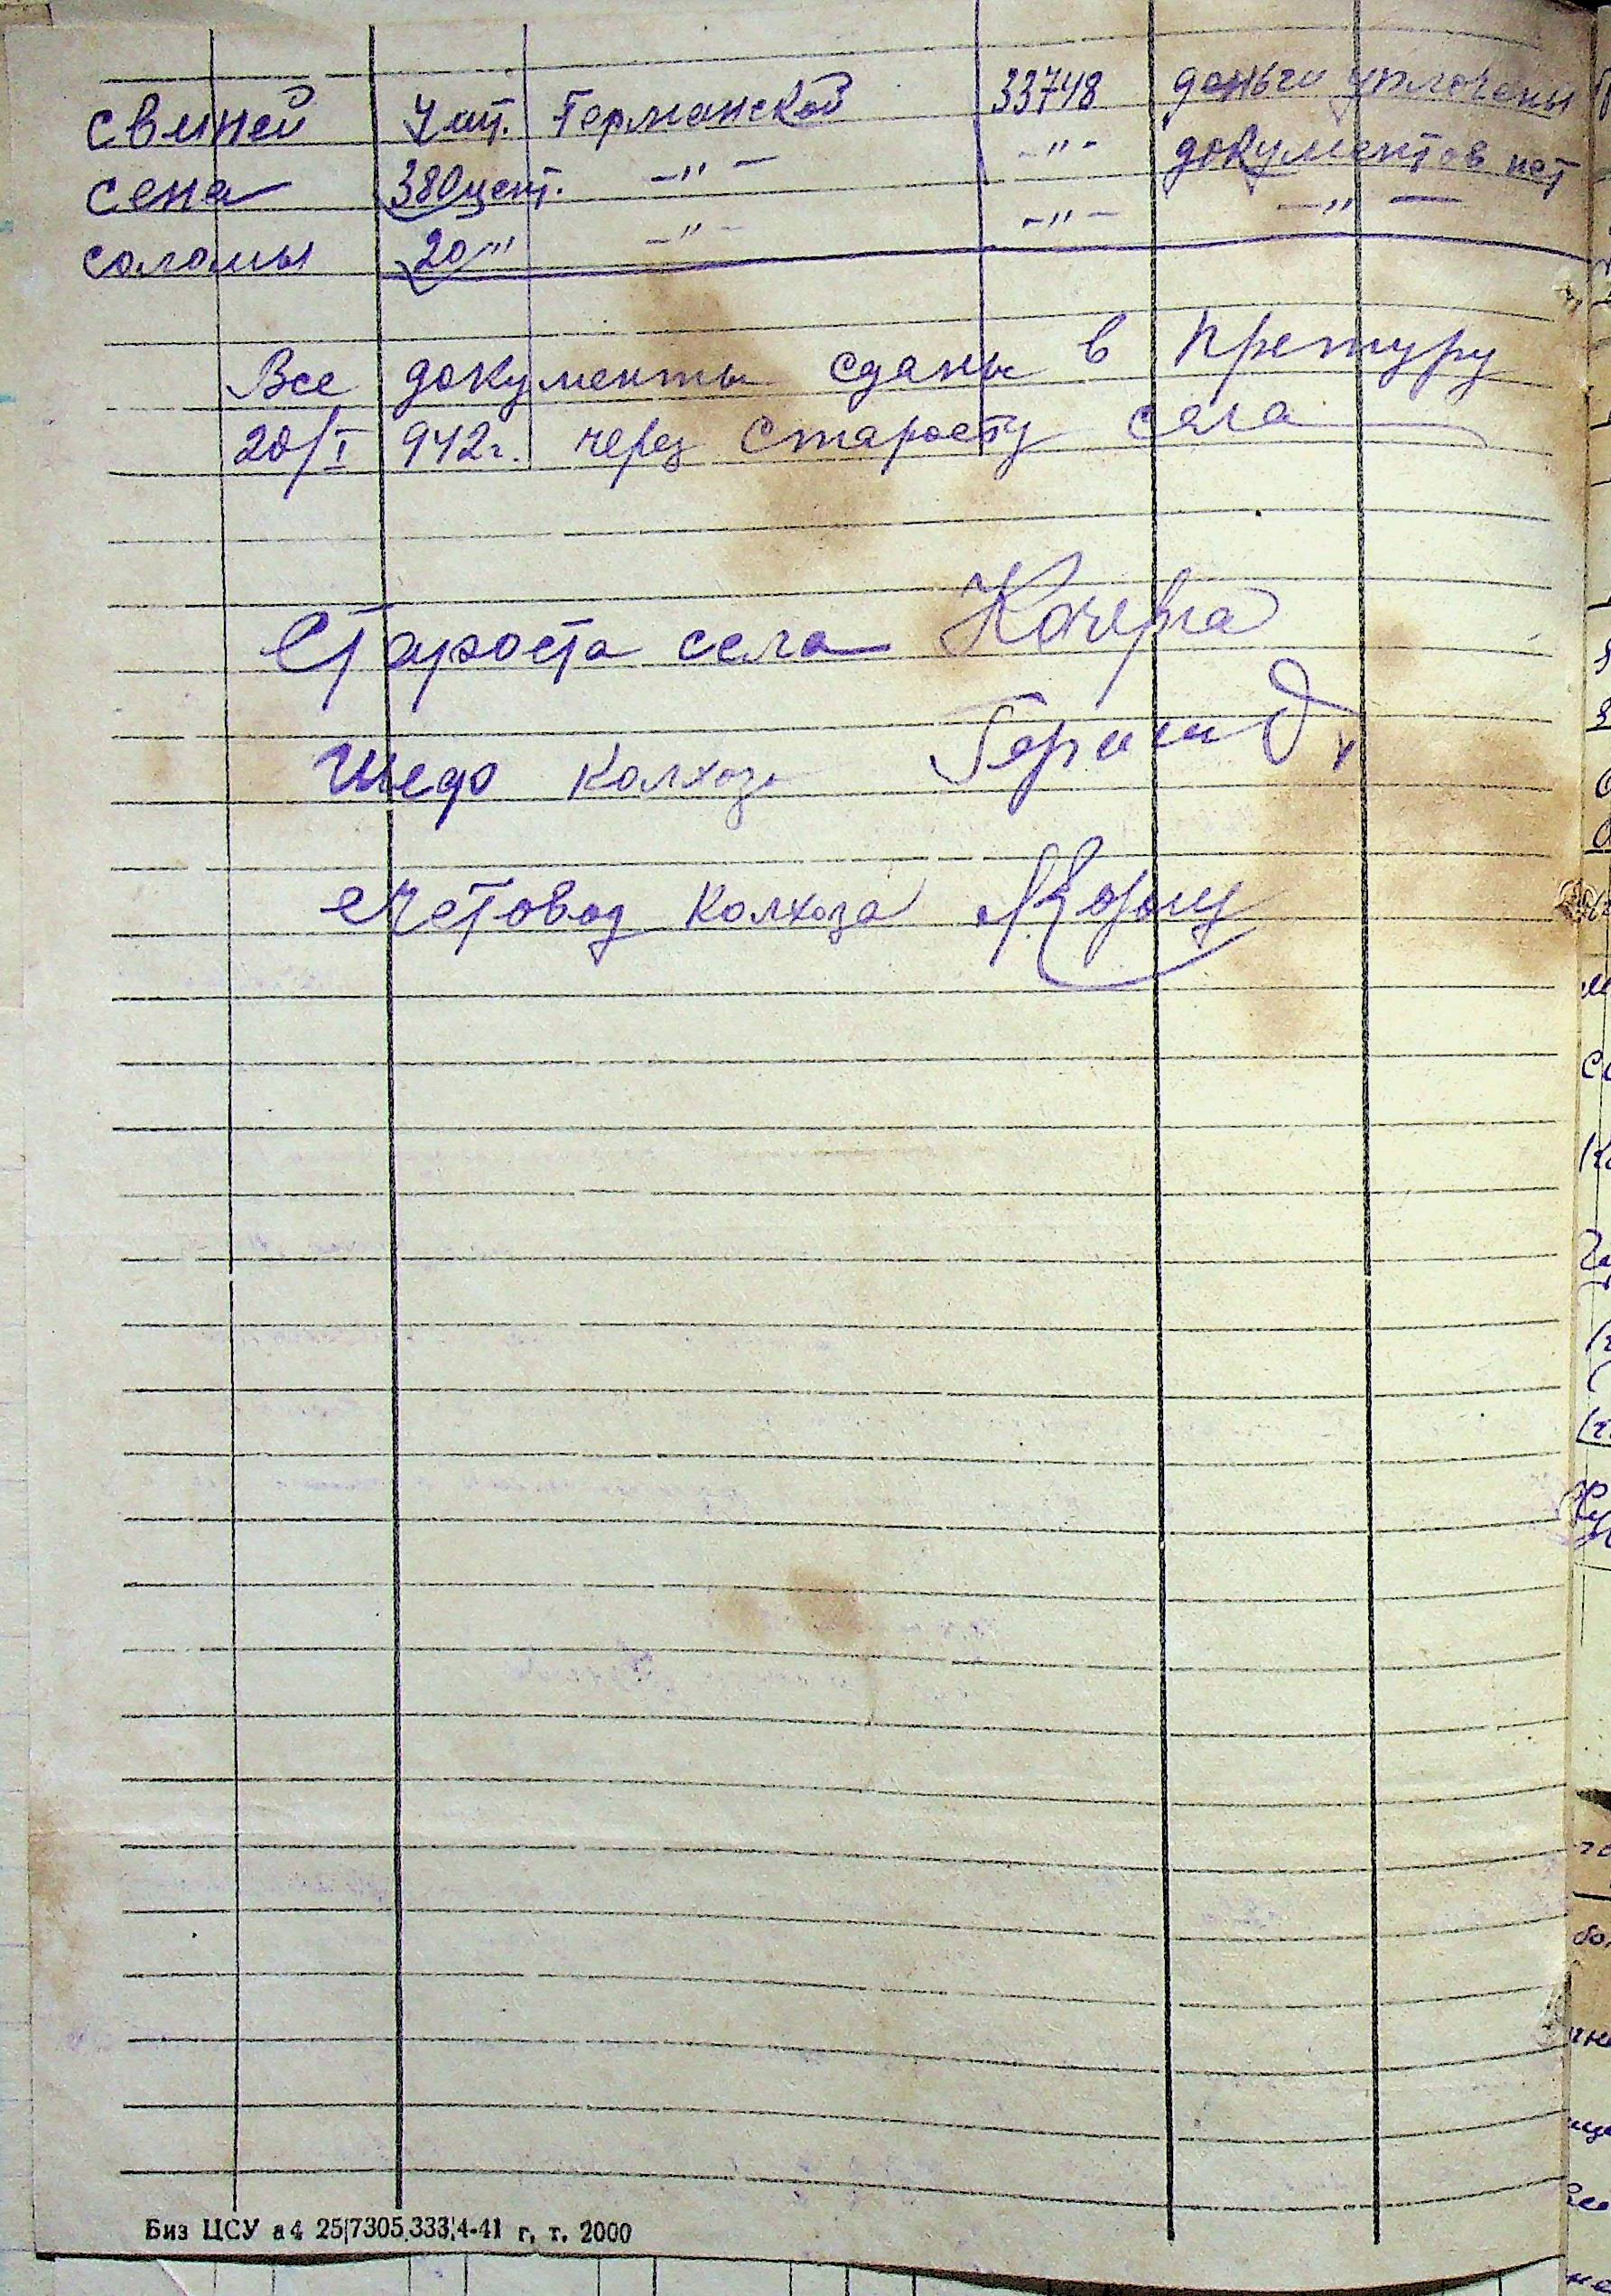 свиней 4 шт. Германской 33748 деньги уплочены
сена 380 цент. -"- -"- документов нет
соломы 20 " -"- -"- -"-
Все документы сданы в претуру
20/I 942г. через Старосту села
Староста села Кочерга
Шеф колхоза
счетовод колхоза
Биз ЦСУ а4 25/7305 333/4-41 г, т. 2000